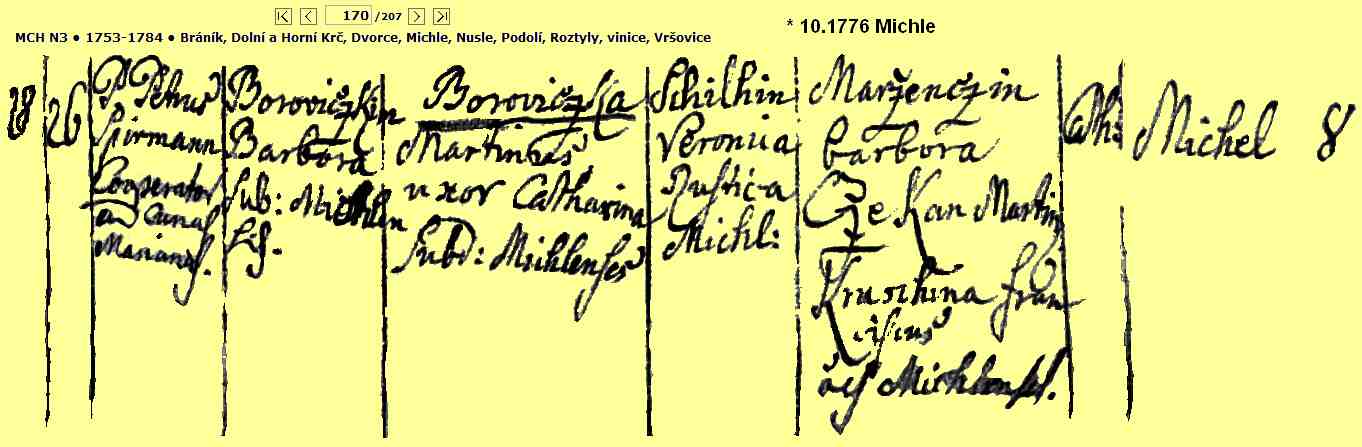 170 /207
* 10.1776 Michle
MCH N3 ● 1753-1784 ● Bráník, Dolní a Horní Krč, Dvorce, Michle, Nusle, Podolí, Roztyly, vinice, Vršovice
18
26
P Petrus
Cooperator
Borovicžkin
Barbora
Sub: Michlen
sis.
Borovicžka
Martinus
uxor Catharina
Subd: Michlenses
Schilhin
Veronica
Rustica
Michl:
Maržencžin
barbora
Czekan Martin
Truschina Fran
ciscus
Michlenses.
Cath:
Michel 8